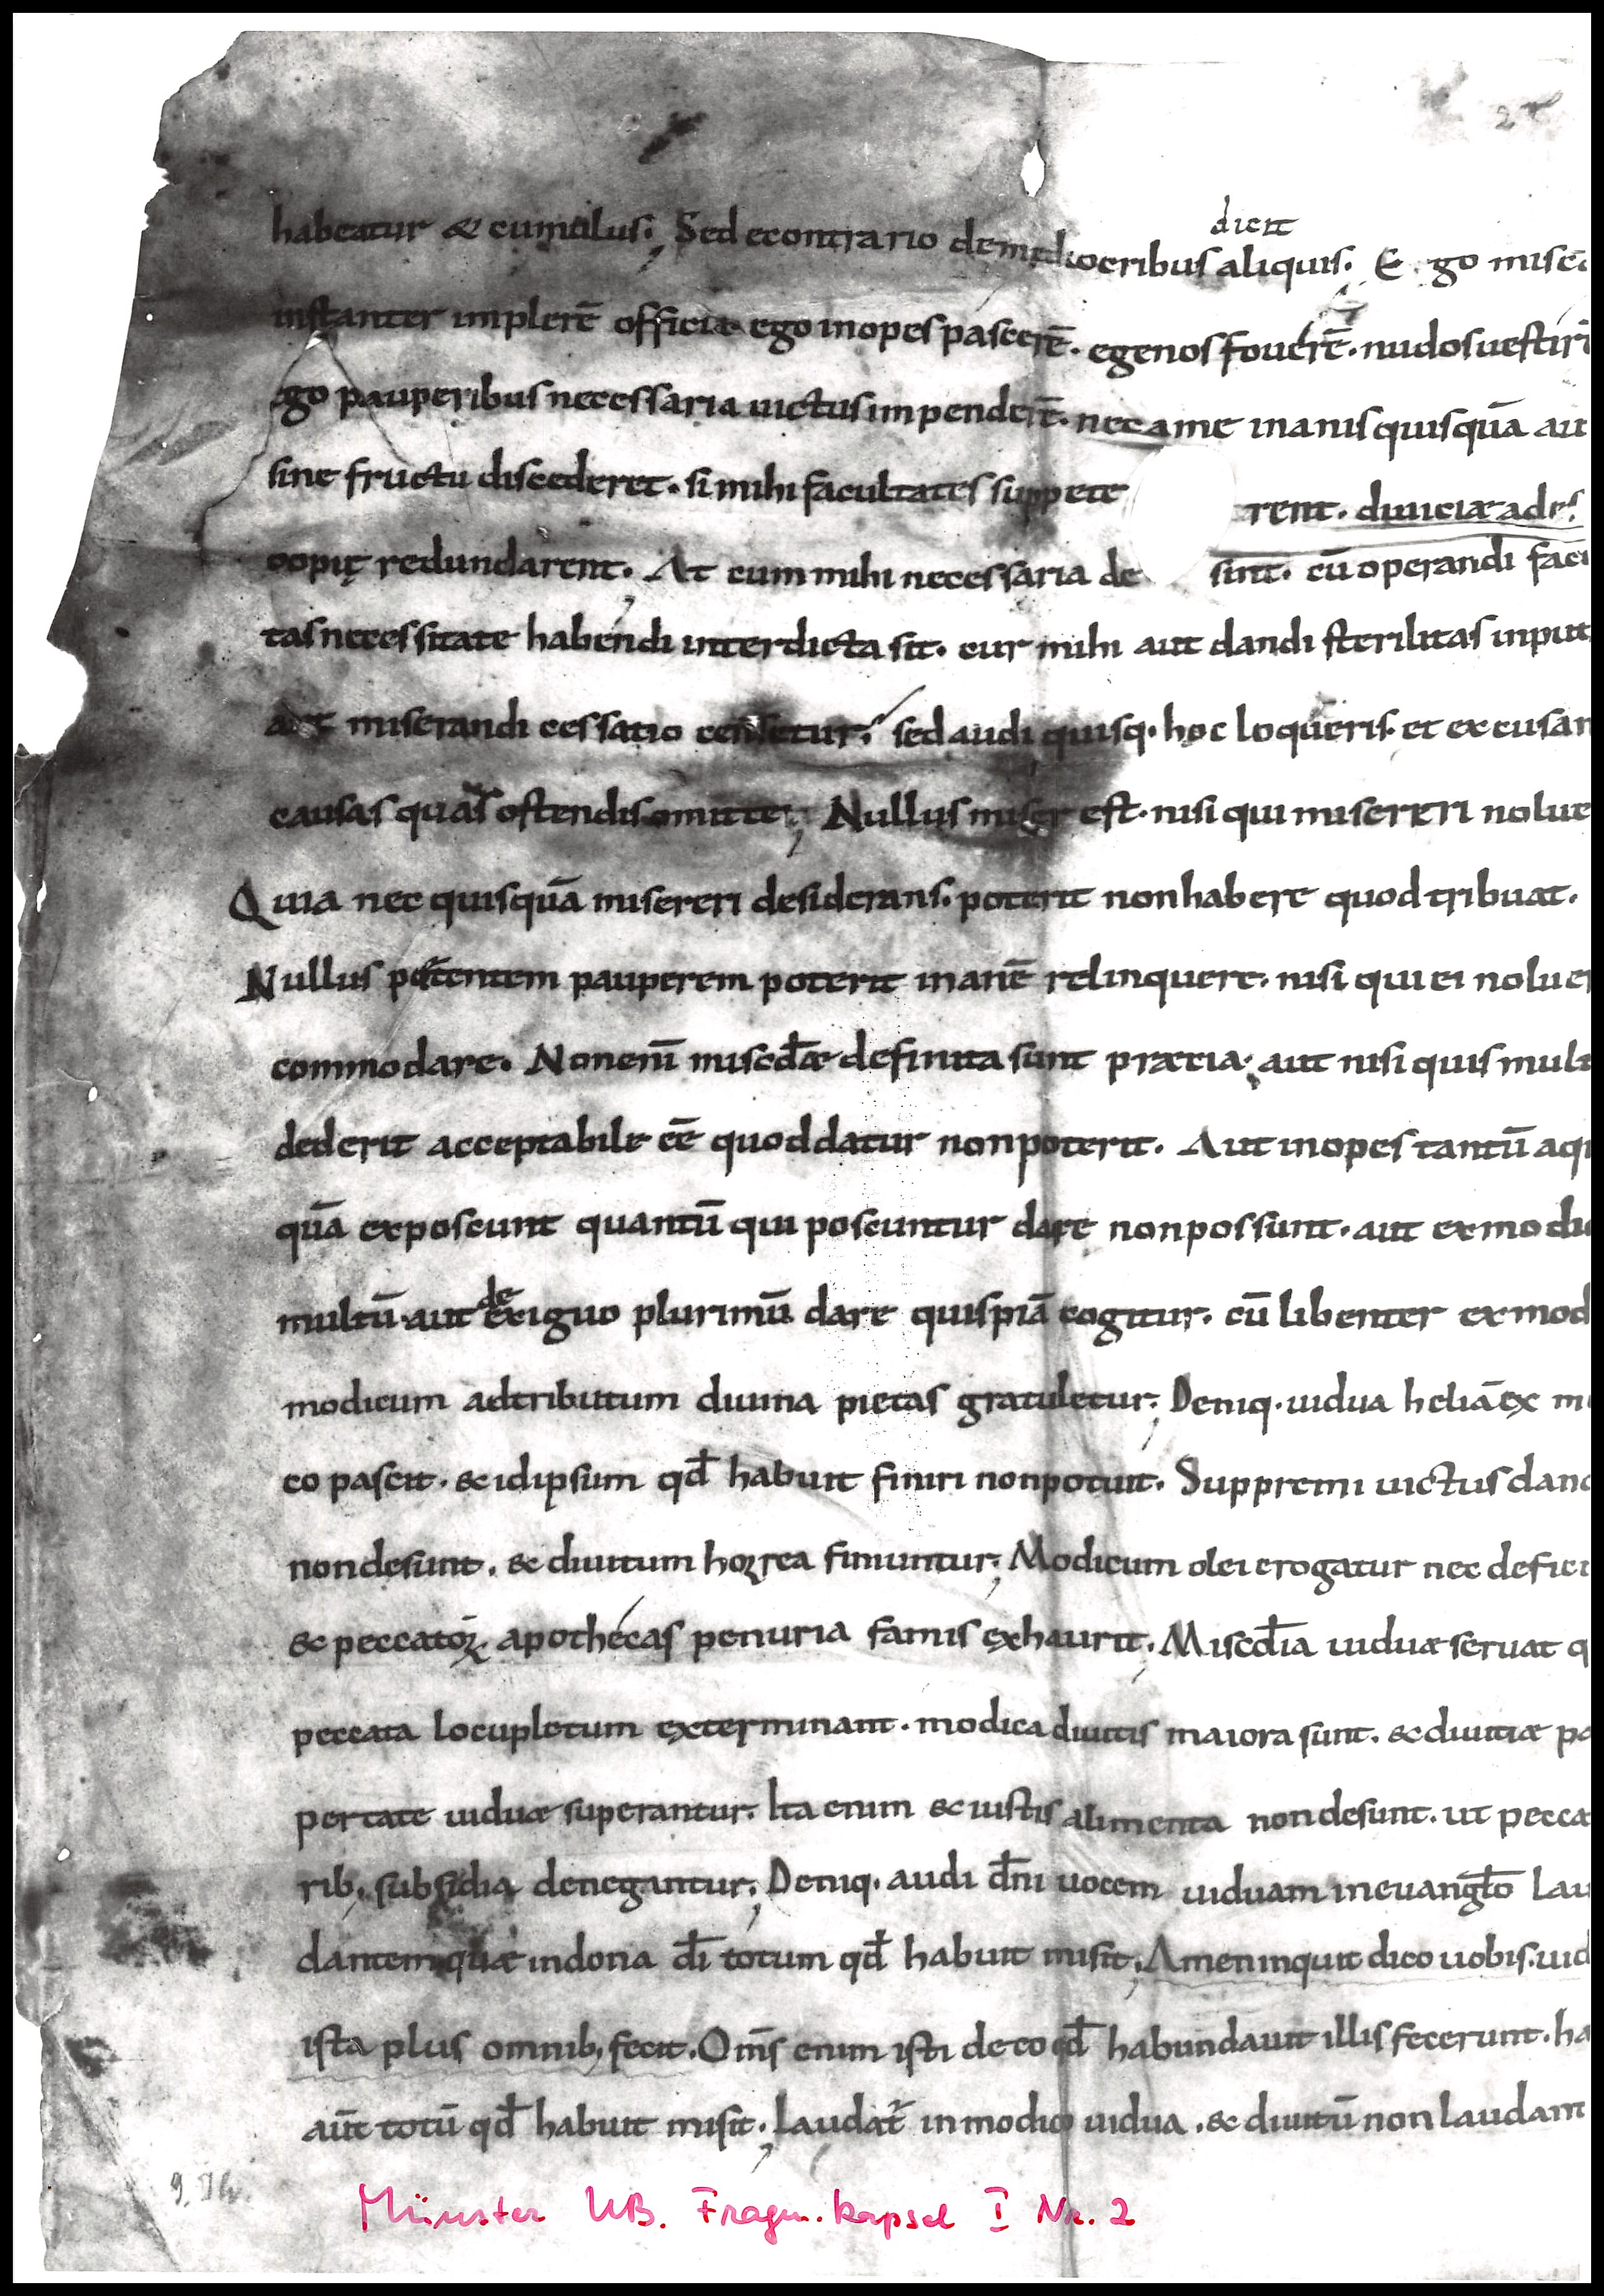 2r
dicit
habeatur & cumulus; Sed econtrario demediocribus aliquis. E go misc
instanter implerē officia ego inopes pascerē. egenos fouerē. nudos uestirē
ego pauperibus necessaria uictus impenderē. nec a me inanis quisquā aut
sine fructu discederet. si mihi facultates suppete rent. diuiciæ ades
copię redundarent. At cum mihi necessaria de sint. cū operandi facu
tas necessitate habendi interdicta sit. cur mihi aut dandi sterilitas input
aut miserandi cessatio censetur; sed audi quisq. hoc loqueris. et excusan
causas quas ostendis omitte; Nullus miser est. nisi qui misereri nolue
Quia nec quisquā misereri desiderans. poterit non habere quod tribuat.
Nullus petentem pauperem poterit inanē relinquere. nisi qui ei noluer
commodare. Non enī miscdæ definita sunt prætia; aut nisi quis mult
dederit acceptabile eē quod datur non poterit. Aut inopes tantū aq
quā exposcunt quantū qui poscuntur dare non possunt. aut ex modic
de
multū. aut exiguo plurimū dare quispiā cogitur. cū libenter ex mod
modicum adtributum diuina pietas gratuletur; Deniq. uidua heliā ex m
co pascit. & id ipsum qđ habuit finiri non potuit. Suppremi uictus dan
non desunt. & diuitum horrea finiuntur; Modicum olei erogatur nec defici
& peccatoꝝ apothecas penuria famis exhaurit; Miscđia uiduæ seruat q
peccata locupletum exterminant. modica diuitis maiora sunt. & diuitiæ pa
pertate uiduæ superantur. Ita enim & iustis alimenta non desunt. ut pecca
rib; subsidia denegantur; Deniq. audi dn̄i uocem uiduam in euangło Lau
dantem quæ in dona dī totum qđ habuit misit; Amen inquit dico uobis. uid
ista plus omnib; fecit. Om̄s enim isti de eo qđ habundauit illis fecerunt. ha
aūt totū qđ habuit misit; Laudat̄ in modico uidua. & diuitū non laudant
Münster UB. Fragm.kapsel I Nr. 2